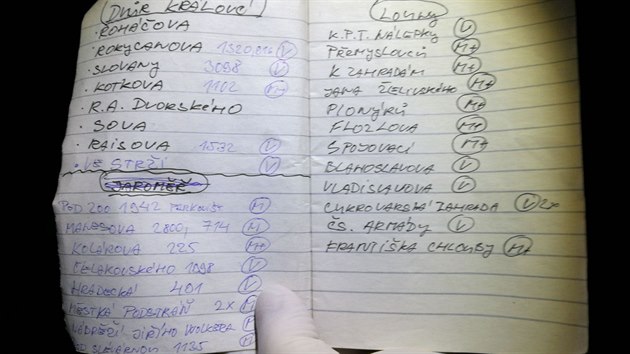 DVŮR KRÁLOVÉ
· ROHÁČOVA
· ROKYCANOVA V
· SLOVANY 3098 V
· KOTKOVA 1102 M+
· R.A. DVORSKÉHO
· SOVA
· RAISOVA 1532 V
· VE STRŽI V
JAROMĚŘ
POD ZOO 1942 M
MÁNESOVA 2800, 714 M
KOLÁROVA 225 M+
ČELAKOVSKÉHO 1098 V
HRADECKÁ 401 V
MĚSTKÁ PODSTRÁŇ 2x M
NÁBŘEŽÍ JIŘÍHO WOLKERA
SLÉVÁRNOU 1135
LOUNY
K.P.T. NÁLEPKY V
PŘEMYSLOVCŮ M+
K ZAHRADÁM M+
JANA ŽELIVSKÉHO M+
PIONÝRŮ M+
FLOZLOVA M+
SPOJOVACÍ M+
BLAHOSLAVOVA V
VLADISLAVOVA V
CUKROVARSKÁ ZAHRADA V 2x
ČS. ARMÁDY V
FRANTIŠKA CHLOUBY M+